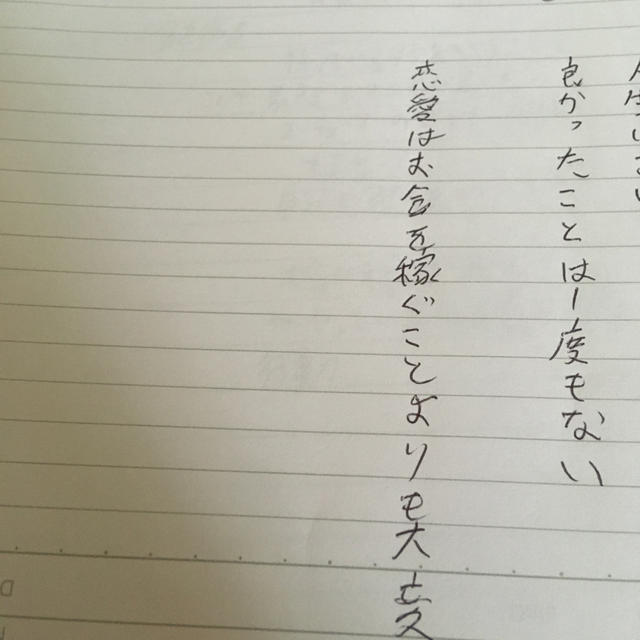 良かったことは一度もない
恋愛はお金を稼ぐことよりも大変